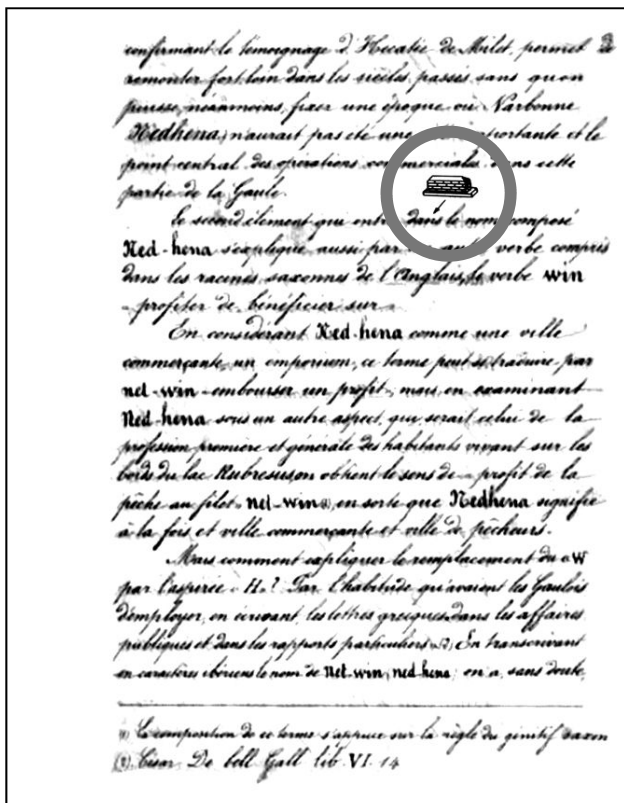 confirmant le témoignage d'Hécatée de Milet, permet de
remonter fort loin dans les siècles passés sans qu'on
puisse, néanmoins, fixer une époque où Narbonne
Nedhena, n'aurait pas été une importante et le
point central des opérations commerciales dans cette
partie de la Gaule.
Le second élément qui entre dans le nom composé
Ned-hena s'explique aussi par un autre verbe compris
dans les racines saxonnes de l'anglais, le verbe win
- profiter de, bénéficier sur -
En considérant Ned-hena comme une ville
commerçante, un emporium, ce terme peut se traduire par
net-win - embourser un profit; mais en examinant
Ned-hena sous un autre aspect, qui serait celui de la
profession première et générale des habitants vivant sur les
bords du lac Rubresus, on obtient le sens de - profit de la
pêche au filet - net-win (1), en sorte que Nedhena signifie
à la fois et ville commerçante et ville de pêcheurs.
Mais comment expliquer le remplacement du W
par l'aspirée H? Par l'habitude qu'avaient les Gaulois
d'employer, en écrivant, les lettres grecques dans les affaires
publiques et dans les rapports particuliers (2). En transcrivant
en caractères ibériens le nom de net-win, ned hena; on a, sans doute,
(1) La composition de ce terme s'appuie sur la règle du génitif saxon
(2) César De bell Gall lib. VI. 14